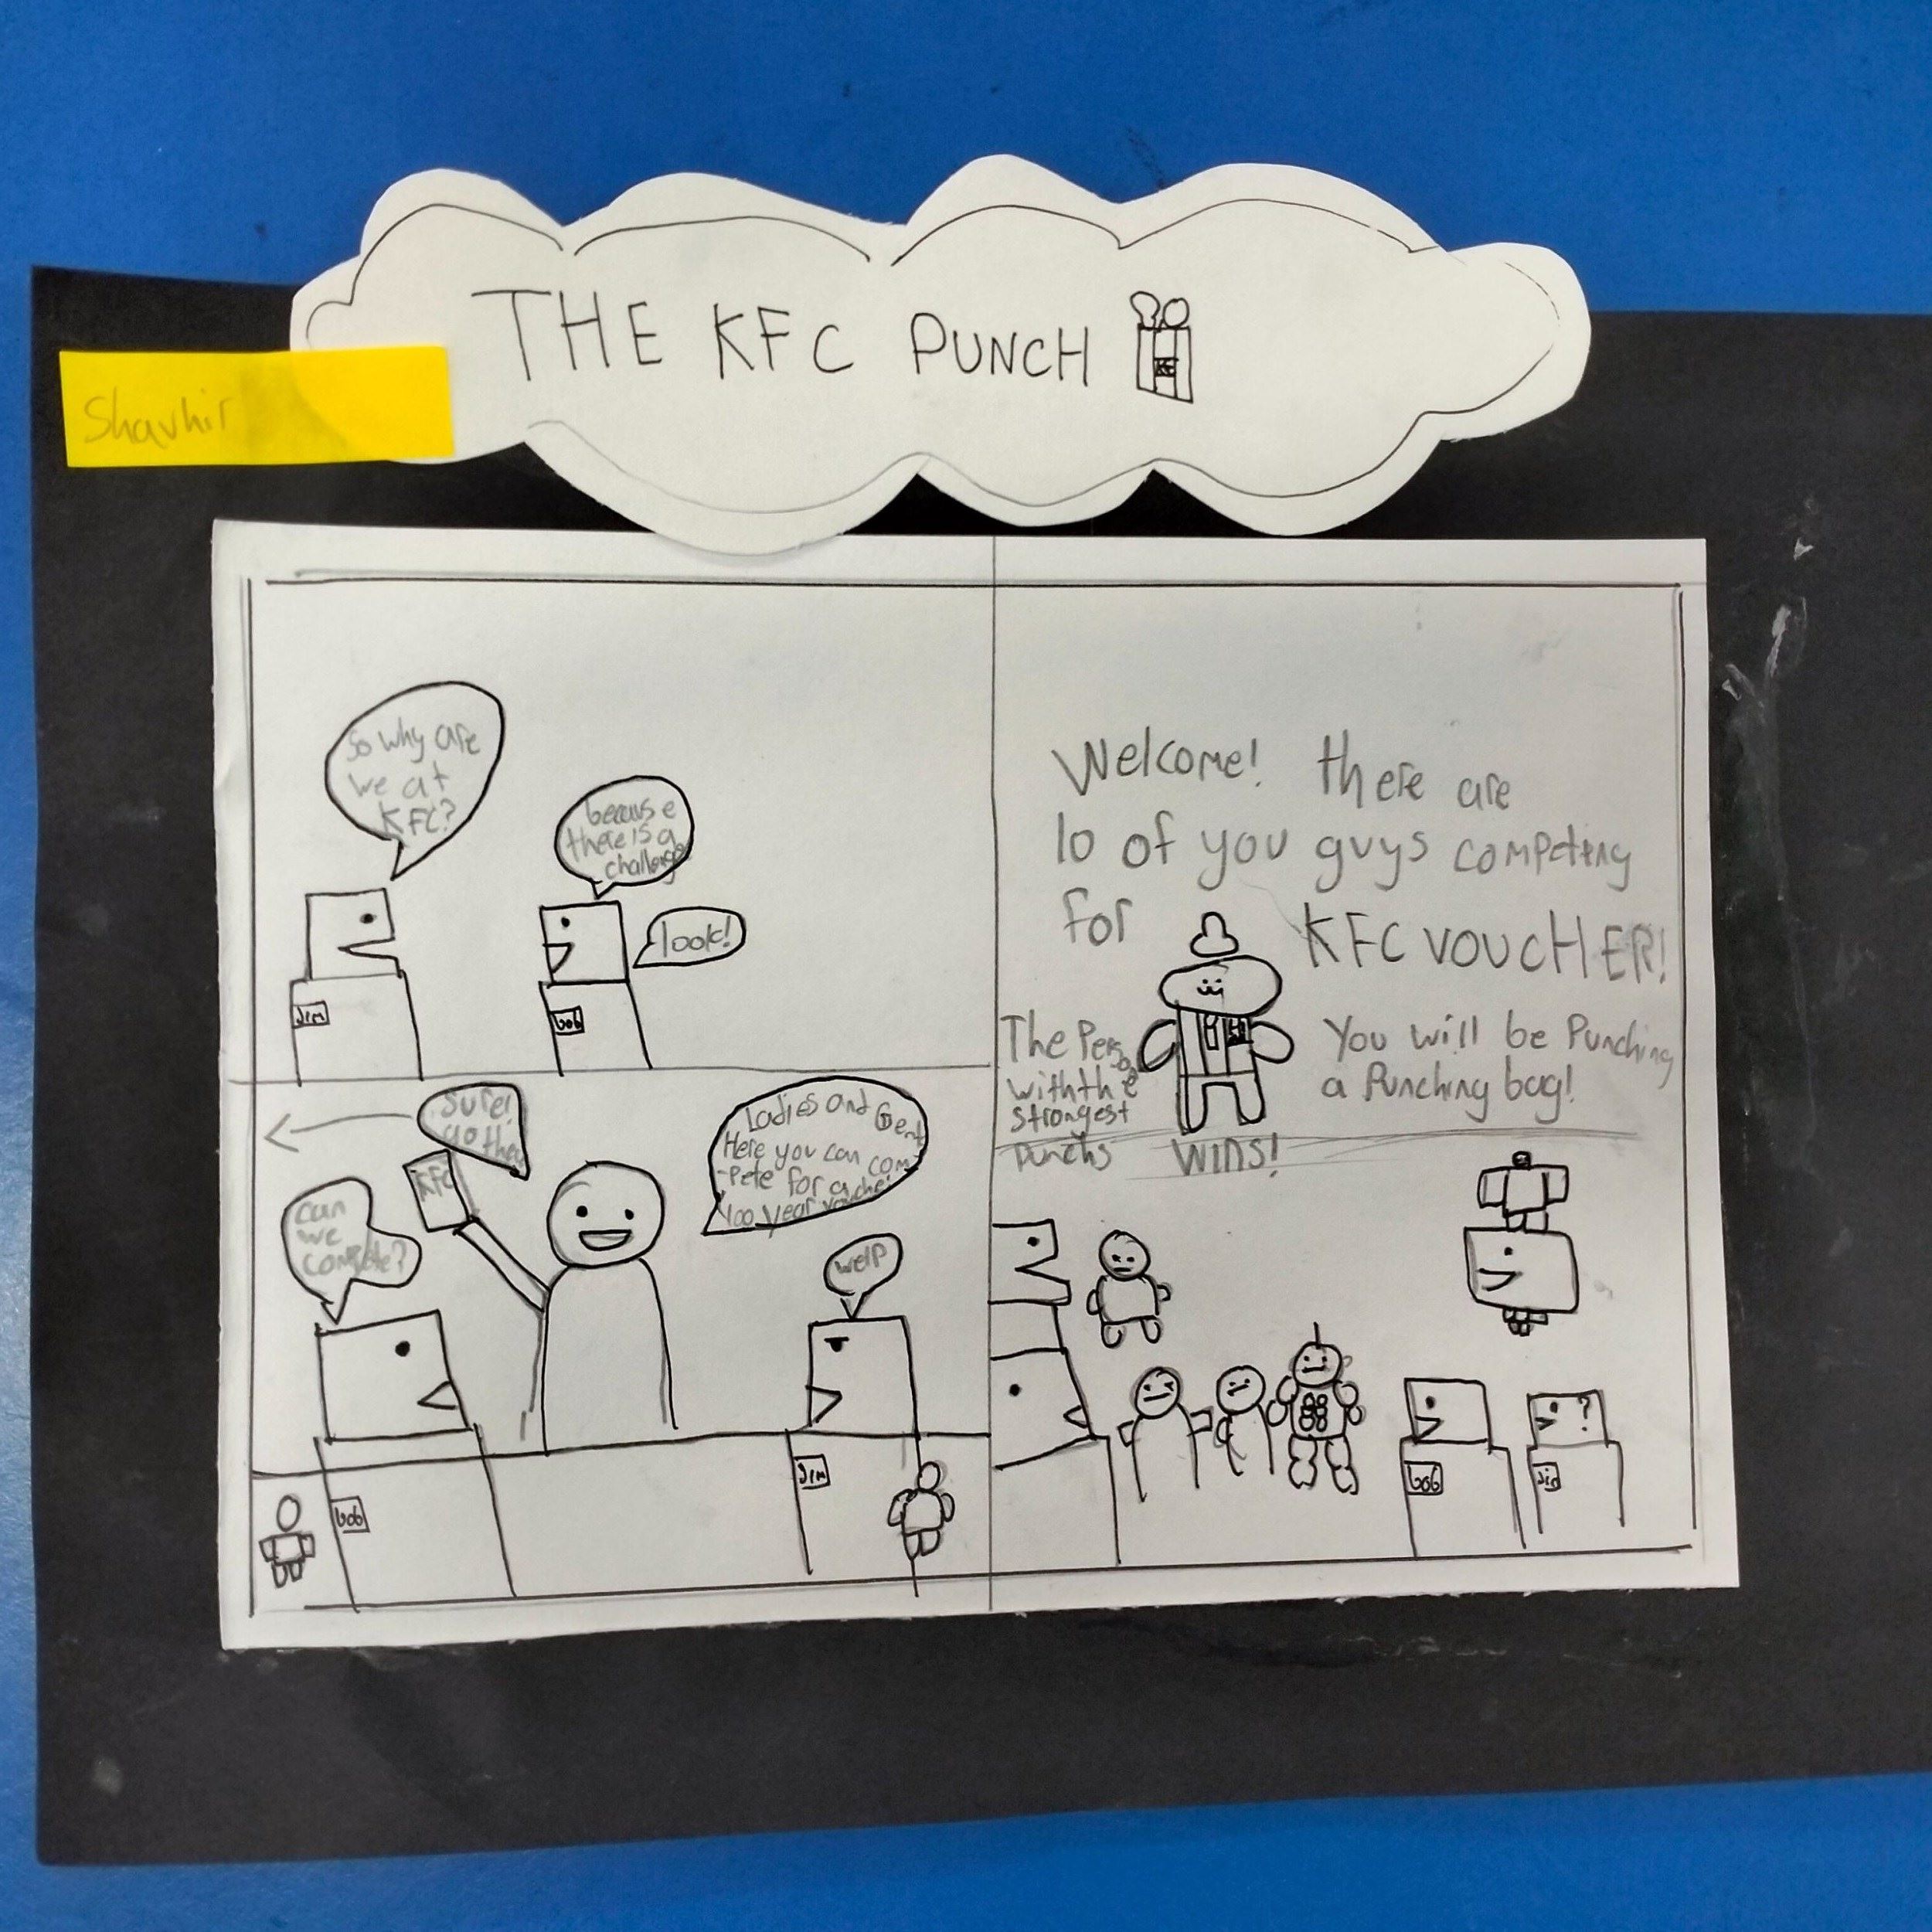 THE KFC PUNCH
KFC
Shavhir
So why are
we at
KFC?
because
there is a
challenge
look!
Jim
bob
Sure!
go there
KFC
Ladies and Gent
Here you can com
-pete for a
400 year voucher
can
we
compete?
welp
bob
Jim
Welcome! there are
10 of you guys competing
for
KFC VOUCHER!
The Person
with the
strongest
punchs
WINS!
You will be Punching
a Punching bag!
?
bob
Jim